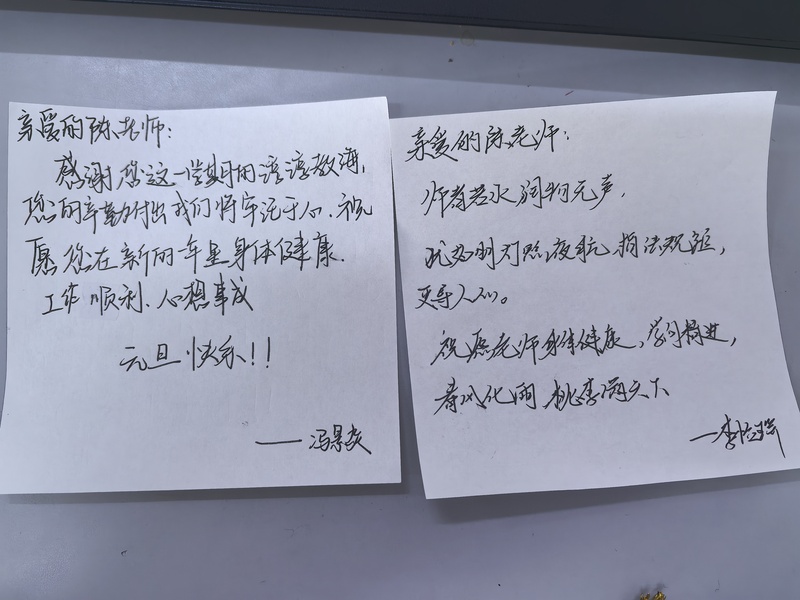 亲爱的陈老师：
感谢您这一学期的谆谆教诲，
您的辛勤付出我们将牢记于心．祝
愿您在新的一年里身体健康．
工作顺利、心想事成
元旦快乐！！
——冯景炎
亲爱的陈老师：
师者若水润物无声，
犹如明灯照夜航，指法规矩，
更导人心。
祝愿老师身体健康，学问精进，
春风化雨 桃李满天下
—李